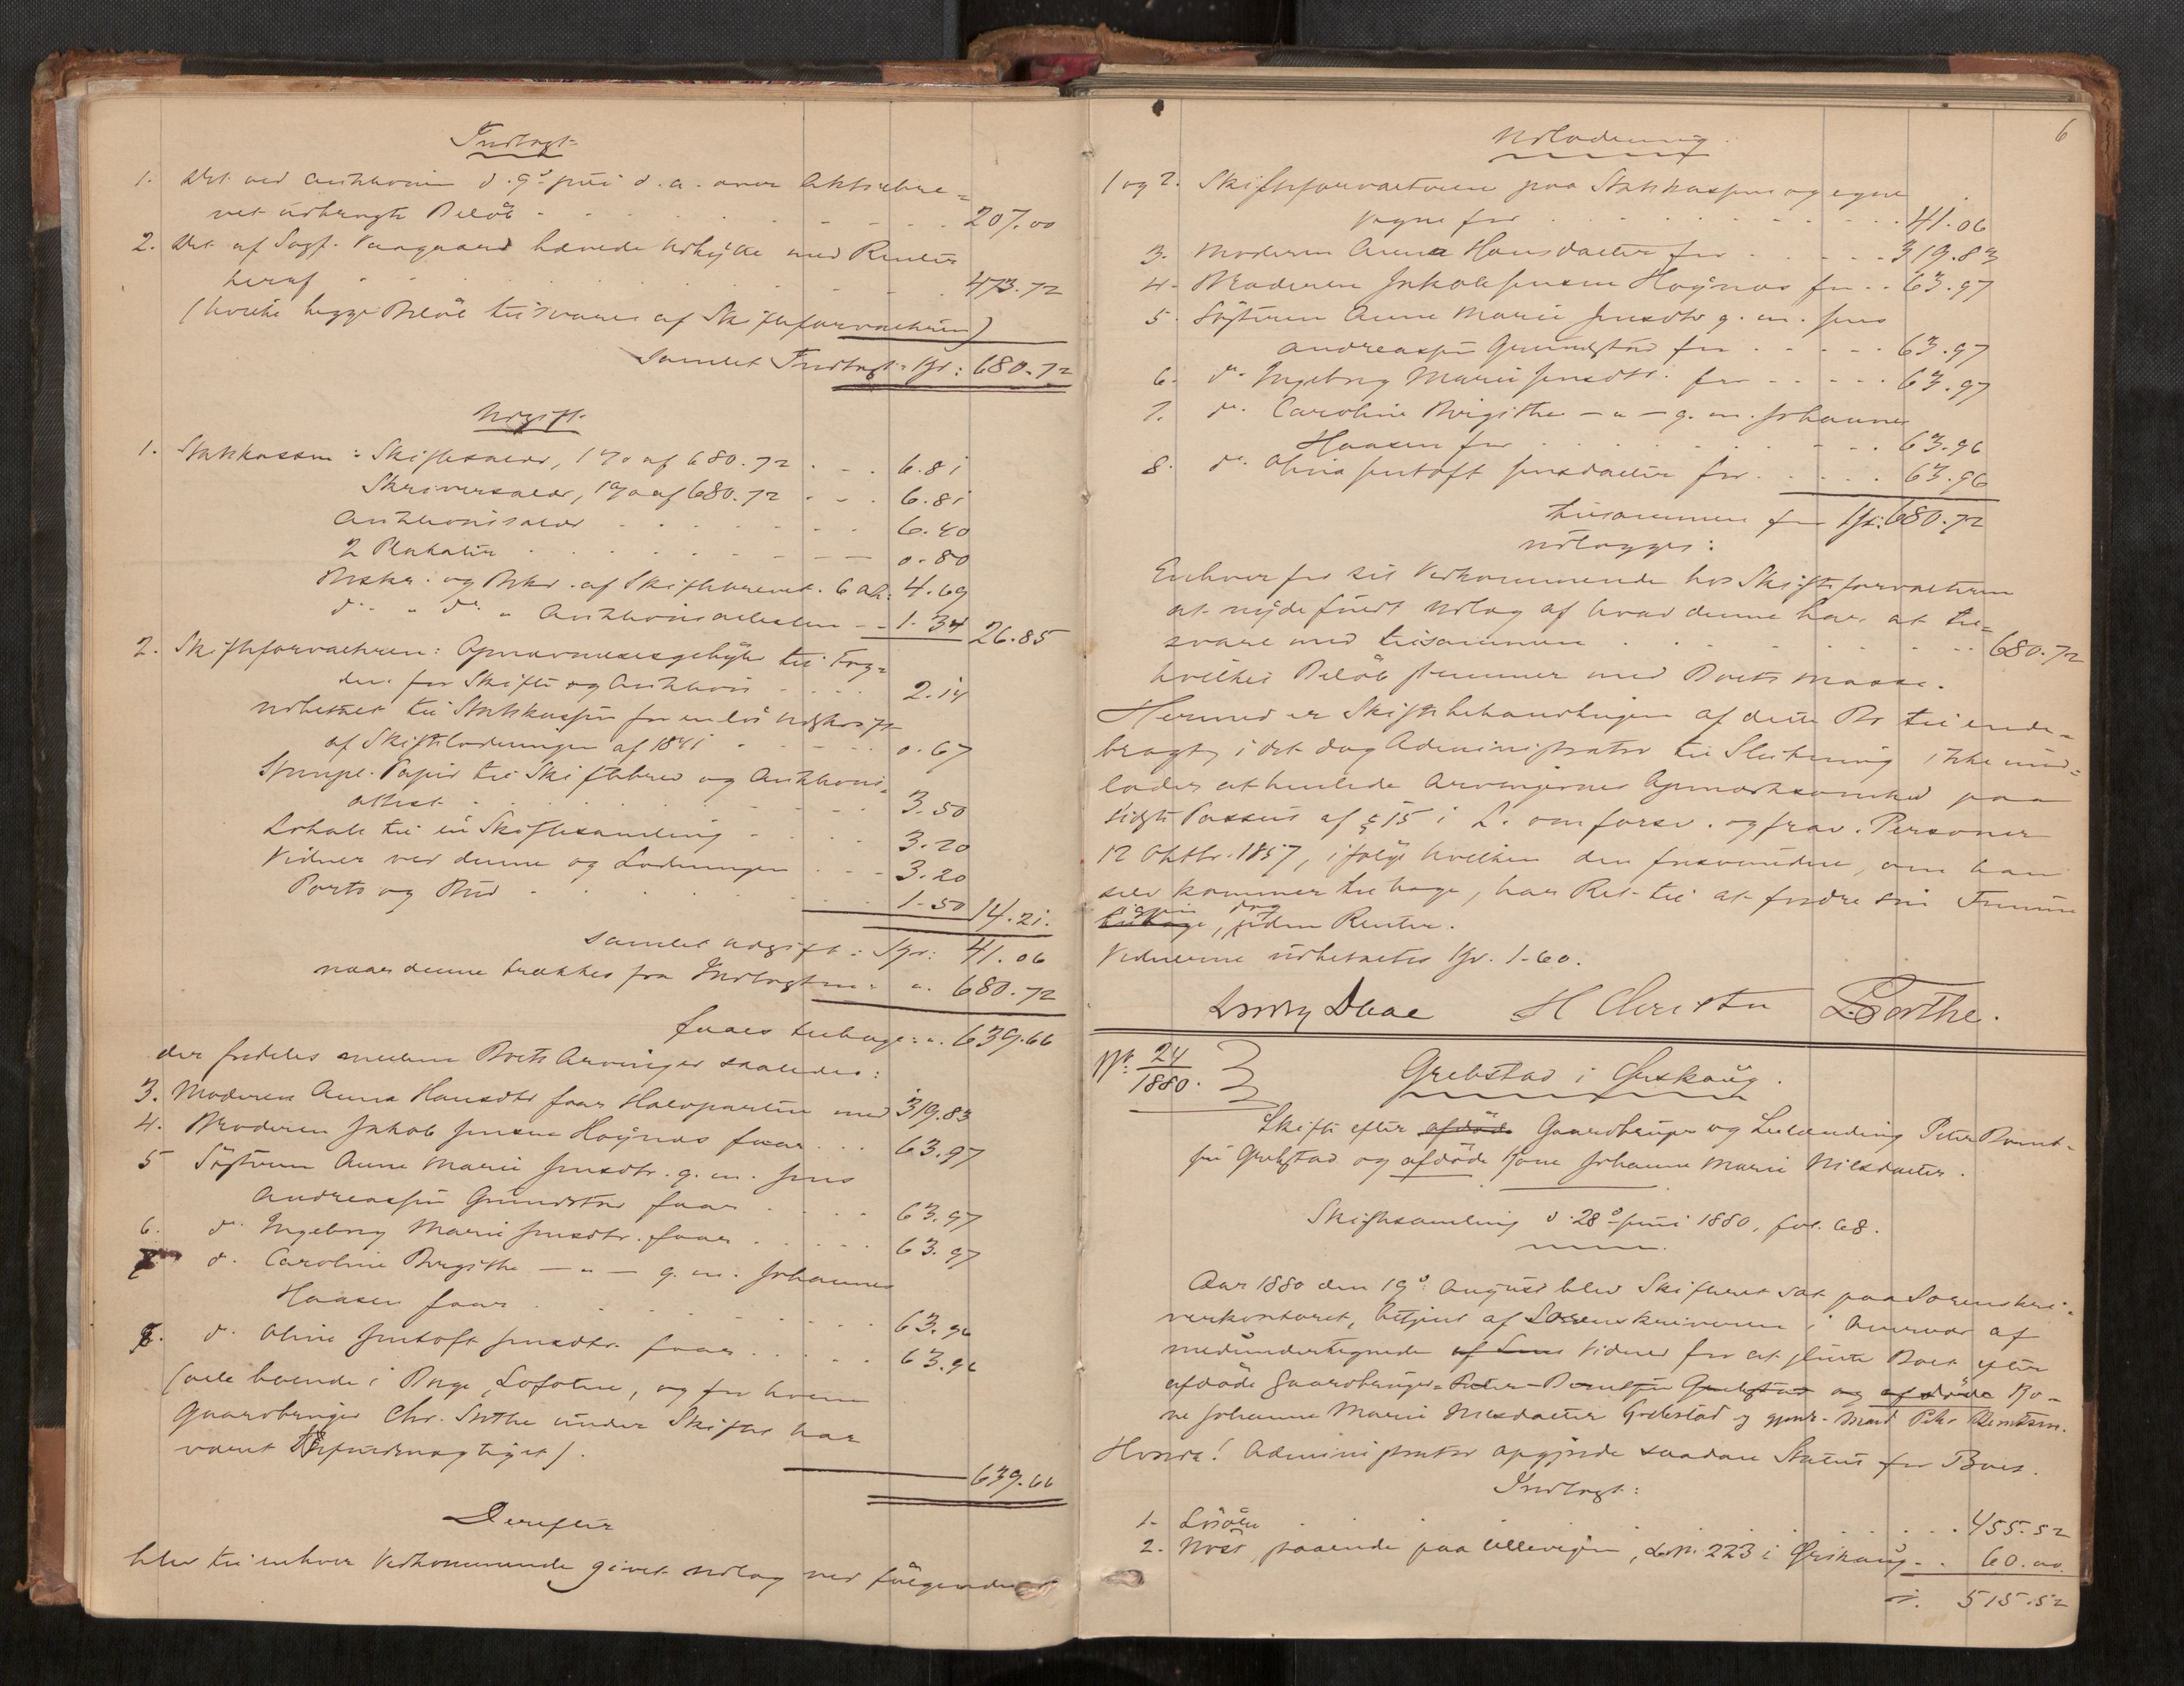 Indtægt
1. Det ved Auktionen d. 9de Juni d. a. over Aktsiebre=
vet udbragte Beløb 207.00
2. Det af Sagf. Vaagaard hævede Udbytte med Renter
heraf 473.72
(hvilke begge Beløb tilsvares af Skifteforvalteren)
Samlet Indtægt: Kr: 680.72
Udgift
1. Statskassen: Skiftesalær, 1% af 680.72 6.81
Skriversalær, 1% af 680.72 6.81
Auktionssalær 6.40
2 Plakater 0.80
Beskr. og Bkr. af Skiftebrevet. 6 Ark: 4.69
do. " do. " Auktionsattesten 1.34 26.85
2. Skifteforvalteren: Opnævnelsesgebyr til Fog=
den for Skifte og Auktion 2.14
Udbetalt til Statskassen for en løs Udskrift
af Skiftelodningen af 1841 0.67
Stempl. Papir til Skiftebrev og Auktions=
attest 3.50
Lokale til en Skiftesamling 3.20
Vidner ved denne og Lodningen 3.20
Porto og Bud 1.50 14.21.
Samlet Udgift: Kr: 41.06
naar denne trækkes fra Indtægten: " 680.72
faaes tilbage: " 639.66
der fordeles mellem Boets Arvinger saaledes:
3. Moderen Anna Hansdtr faar Halvparten med 319.83
4. Broderen Jakob Jensen Høynes faar 63.97
5 Søsteren Anne Marie Jensdtr. g. m. Jens
Andreassen Grundstad faar 63.97
6. do. Ingeborg Marie Jensdtr. faar 63.97
7 d. Caroline Birgithe — " — g. m. Johannes
Haasen faar 63.96
8. d. Oline Jentoft Jensdtr. faar 63.96
(alle boende i Borge, Lofoten, og for hvem
Gaardbruger Chr. Sothe under Skiftet har
været befuldmægtiget).
639.66
Derefter
blev til enhver Vedkommende givet Udlæg ved følgende
6
Udlodning.
1 og 2. Skifteforvalteren paa Statskassens og egne
Vegne for 41.06
3. Moderen Anna Hansdatter for 319.83
4. Broderen Jakob Jensen Høynes for 63.97
5. Søsteren Anne Marie Jensdtr g. m. Jens
Andreassen Grundstad for 63.97
6. do. Ingeborg Marie Jensdtr. for 63.97
7. do. Caroline Birgithe — " — g. m. Johannes
Haasen for 63.96
8. do. Oline Jentoft Jensdatter for 63.96
tilsammen for Kr: 680.72
udlægges:
Enhver for sit Vedkommende hos Skifteforvalteren
at nyde fuldt Udlæg af hvad denne har at til=
svare med tilsammen 680.72
hvilket Beløb stemmer med Boets Masse.
Hermed er Skiftebehandlingen af dette Bo tilende=
bragt, i det dog Administrator til Slutning ikke und=
lader at henlede Arvingernes Opmærksomhed paa
sidste Passus af § 15 i L. om forsv. og frav. Personer
12 Oktbr. 1857, ifølge hvilken den forsvundne, om han
selv kommer tilbage, har Ret til at fordre sin Formue
igjen dog
tilbage, uden Renter.
Vidnerne udbetaltes Kr. 1.60.
Ludv Daae H Christen L. Borthe.
No. 24/1880. Grebstad i Ørskoug.
Skifte efter afdøde Gaardbruger og Lulænding Peter Bernt-
sen Grebstad og afdøde Kone Johanne Marie Nilsdatter.
Skiftesamling d. 28de Juni 1880, fol. 68.
Aar 1880 den 19de August blev Skifteret sat paa Sorenskri=
verkontoret, betjent af Sorenskriveren i Overvær af
medundertegnede af Lens Vidner for at slutte Boet efter
afdøde Gaardbruger Peter Berntsen Grebstad og afdøde Ko-
ne Johanne Marie Nilsdatter Grebstad og gjenl. Mand Peter Berntsen.
Hvorda! Administrator opgjorde saadan Status for Boet.
Indtægt:
1. Løsøre 455.52
2. Nøst, staaende paa Ullevigen, L.No. 223 i Ørskoug 60.00.
Tr. 515.52